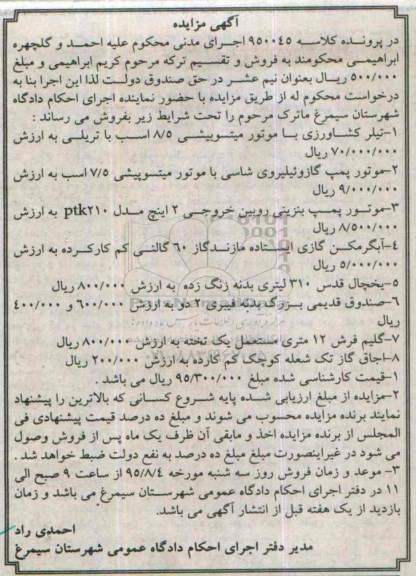 آگهی مزایده
در پرونده کلاسه ۹۵۰۰۴۵ اجرای مدنی محکوم علیه احمد و گلچهره
ابراهیمی محکومند به فروش و تقسیم ترکه مرحوم کریم ابراهیمی و مبلغ
۵۰۰/۰۰۰ ریال بعنوان نیم عشر در حق صندوق دولت لذا این اجرا بنا به
درخواست محکوم له از طریق مزایده با حضور نماینده اجرای احکام دادگاه
شهرستان سیمرغ ماترک مرحوم را تحت شرایط زیر بفروش می رساند :
۱-تیلر کشاورزی با موتور میتسوبیشی ۸/۵ اسب با تریلی به ارزش
۷۰/۰۰۰/۰۰۰ ریال
۲-موتور پمپ گازوئیلیروی شاسی با موتور میتسوپیشی ۷/۵ اسب به ارزش
۹/۰۰۰/۰۰۰ ریال
۳-موتور پمپ بنزینی روبین خروجی ۲ اینچ مدل ptk۲۱۰ به ارزش
۸/۵۰۰/۰۰۰ ریال
۴-آبگرمکن گازی ایستاده مازندگاز ۶۰ گالنی کم کارکرده به ارزش
۵/۰۰۰/۰۰۰ ریال
۵-یخچال قدس ۳۱۰ لیتری بدنه زنگ زده به ارزش ۸۰۰/۰۰۰ ریال
۶-صندوق قدیمی بزرگ بدنه فیبری ۲ در به ارزش ۶۰۰/۰۰۰ و ۴۰۰/۰۰۰
ریال
۷-گلیم فرش ۱۲ متری مستعمل یک تخته به ارزش ۸۰۰/۰۰۰ ریال
۸-اجاق گاز تک شعله کوچک کم کارده به ارزش ۲۰۰/۰۰۰ ریال
۱-قیمت کارشناسی شده مبلغ ۹۵/۳۰۰/۰۰۰ ریال می باشد .
۲-مزایده از مبلغ ارزیابی شده پایه شروع کسانی که بالاترین را پیشنهاد
نمایند برنده مزایده محسوب می شوند و مبلغ ده درصد قیمت پیشنهادی فی
المجلس از برنده مزایده اخذ و مابقی آن ظرف یک ماه پس از فروش وصول
می شود در غیراینصورت مبلغ مبلغ ده درصد به نفع دولت ضبط خواهد شد .
۳- موعد و زمان فروش روز سه شنبه مورخه ۹۵/۸/۴ از ساعت ۹ صبح الی
۱۱ در دفتر اجرای احکام دادگاه عمومی شهرستان سیمرغ می باشد و زمان
بازدید از یک هفته قبل از انتشار آگهی می باشد.
احمدی راد
مدیر دفتر اجرای احکام دادگاه عمومی شهرستان سیمرغ